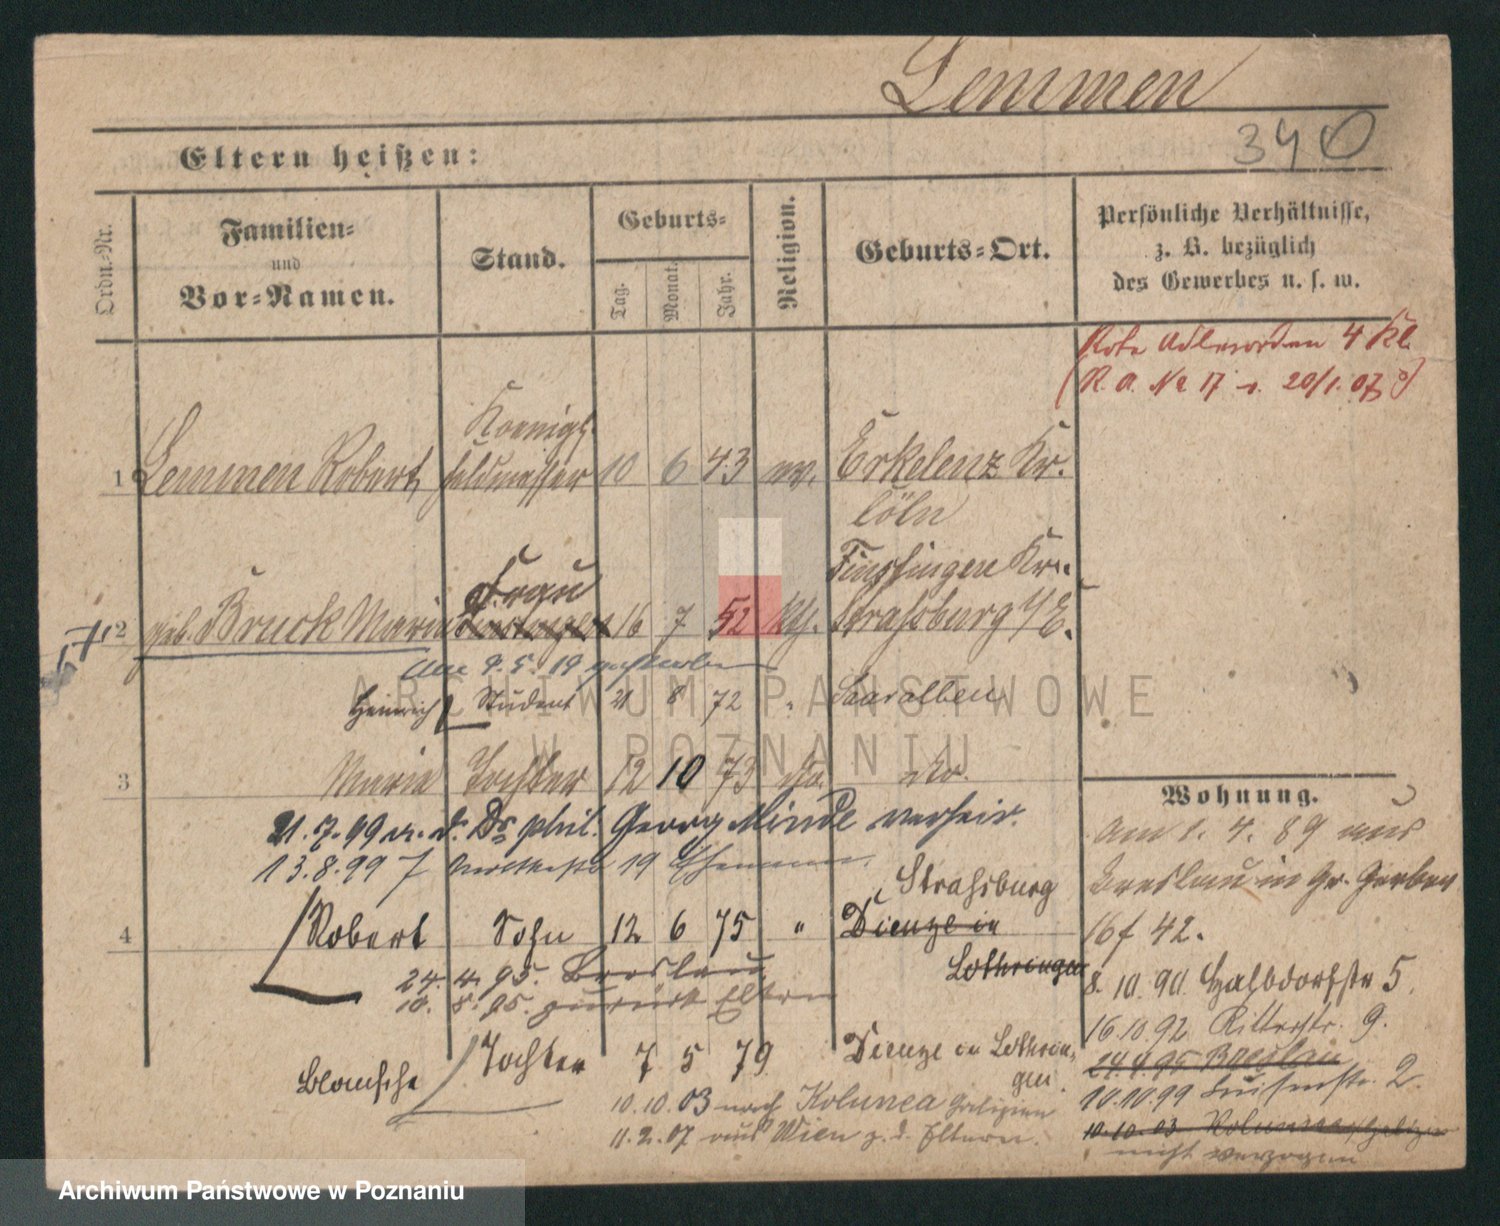 Lemmen
340
Eltern heißen:
Ordn.-Nr.
Familien-
und
Vor-Namen.
Stand.
Geburts-
Tag.
Monat.
Jahr.
Religion.
Geburts-Ort.
Persönliche Verhältnisse,
z. B. bezüglich
des Gewerbes u. s. w.
Rote Adlerorden 4 Kl.
(R. A. No 17 v. 20/1. 07)
Koenigl.
1 Lemmen Robert, Feldmesser 10 6 43 ev. Erkelenz Kr.
Cöln
Frau Finstingen Kr.
2 geb. Bruck Marie 16 7 52 kth. Straßburg i/E.
Am 9. 5. 19 gestorben
Heinrich Student 21 8 72 " Saaralben
3 Maria Tochter 12 10 73 do. do.
21. 7. 99 m. d. Dr. phil. Georg Minde verheir.
13. 8. 99 19
Straßburg
4 Robert Sohn 12 6 75 " Dieuze in
Lothringen
24. 4. 95. Breslau
10. 8. 95. zurück Eltern
Blansche Tochter 7 5 79 Dieuze in Lothrin-
gen.
10. 10. 03 nach Kolumea Galizien
11. 2. 07 aus Wien z. d. Eltern.
Wohnung.
Am 1. 4. 89 aus
Breslau in Gr. Gerber
42.
8. 10. 90. Halbdorfstr 5.
16. 10. 92 Ritterstr. 9.
24. 4. 95 Breslau
10. 10. 99 Luisenstr. 2.
10. 10. 03 Kolumea Galizien
nicht verzogen
ARCHIWUM PAŃSTWOWE
W POZNANIU
Archiwum Państwowe w Poznaniu